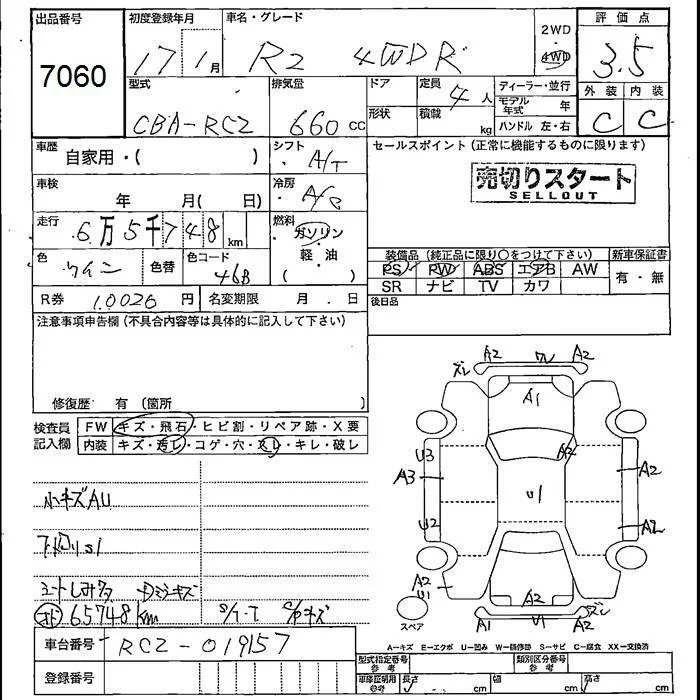 出品番号 初度登録年月 車名・グレード 2WD 評価点
7060 17 1月 R2 4WD R 4WD 3.5
型式 排気量 ドア 定員 4人 ディーラー・並行 外装 内装
CBA-RC2 660cc 形状 積載 kg モデル年式 年 C C
ハンドル 左・右
車歴 自家用・( ) シフト A/T セールスポイント(正常に機能するものに限ります)
売切りスタート
SELLOUT
車検 年 月( 日) 冷房 A/C
走行 6万5千748km 燃料 ガソリン・軽油( )
色 ワイン 色替 色コード 46B
装備品(純正品に限り○をつけて下さい) 新車保証書
PS PW ABS エアB AW 有・無
SR ナビ TV カワ
R券 10026円 名変期限 月 日 後日品
注意事項申告欄(不具合内容等は具体的に記入して下さい)
修復歴 有(箇所 )
検査員記入欄 FW キズ・飛石・ヒビ割・リペア跡・X要
内装 キズ・汚レ・コゲ・穴・スレ・キレ・破レ
小キズAU
65748km
キズ
車台番号 RC2-019157
登録番号
ズレ A2 ワレ A2
A1
U3 A2
A3 U1 A2
U2 A2
A2
U1
A2 ズレ
A1 U1 A2
スペア
A-キズ E-エクボ U-凹み W-補修跡 S-サビ C-腐食 XX-交換済
型式指定番号 参考 類別区分番号 参考
車庫証明用 参考 長さ cm 幅 cm 高さ cm